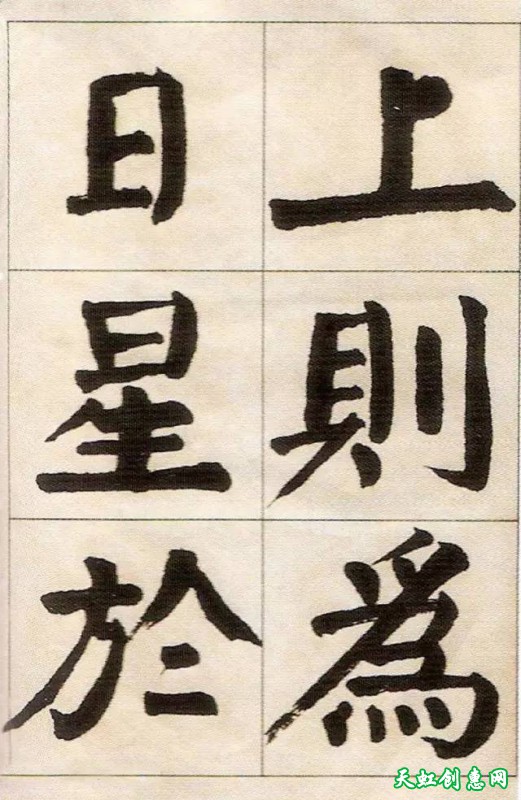 上則為
日星於
天虹创惠网